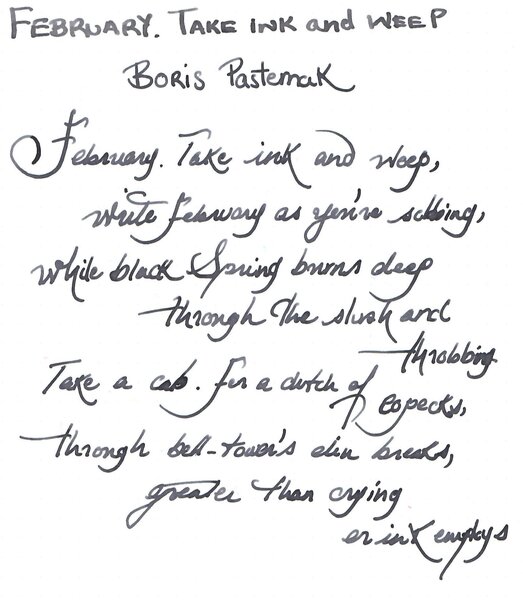 FEBRUARY. TAKE INK AND WEEP
BORIS Pasternak
February. Take ink and weep,
write February as you're sobbing,
while black Spring burns deep
through the slush and
throbbing.
Take a cab. For a clutch of
copecks,
through bell-tower's din breaks,
greater than crying
or ink employs